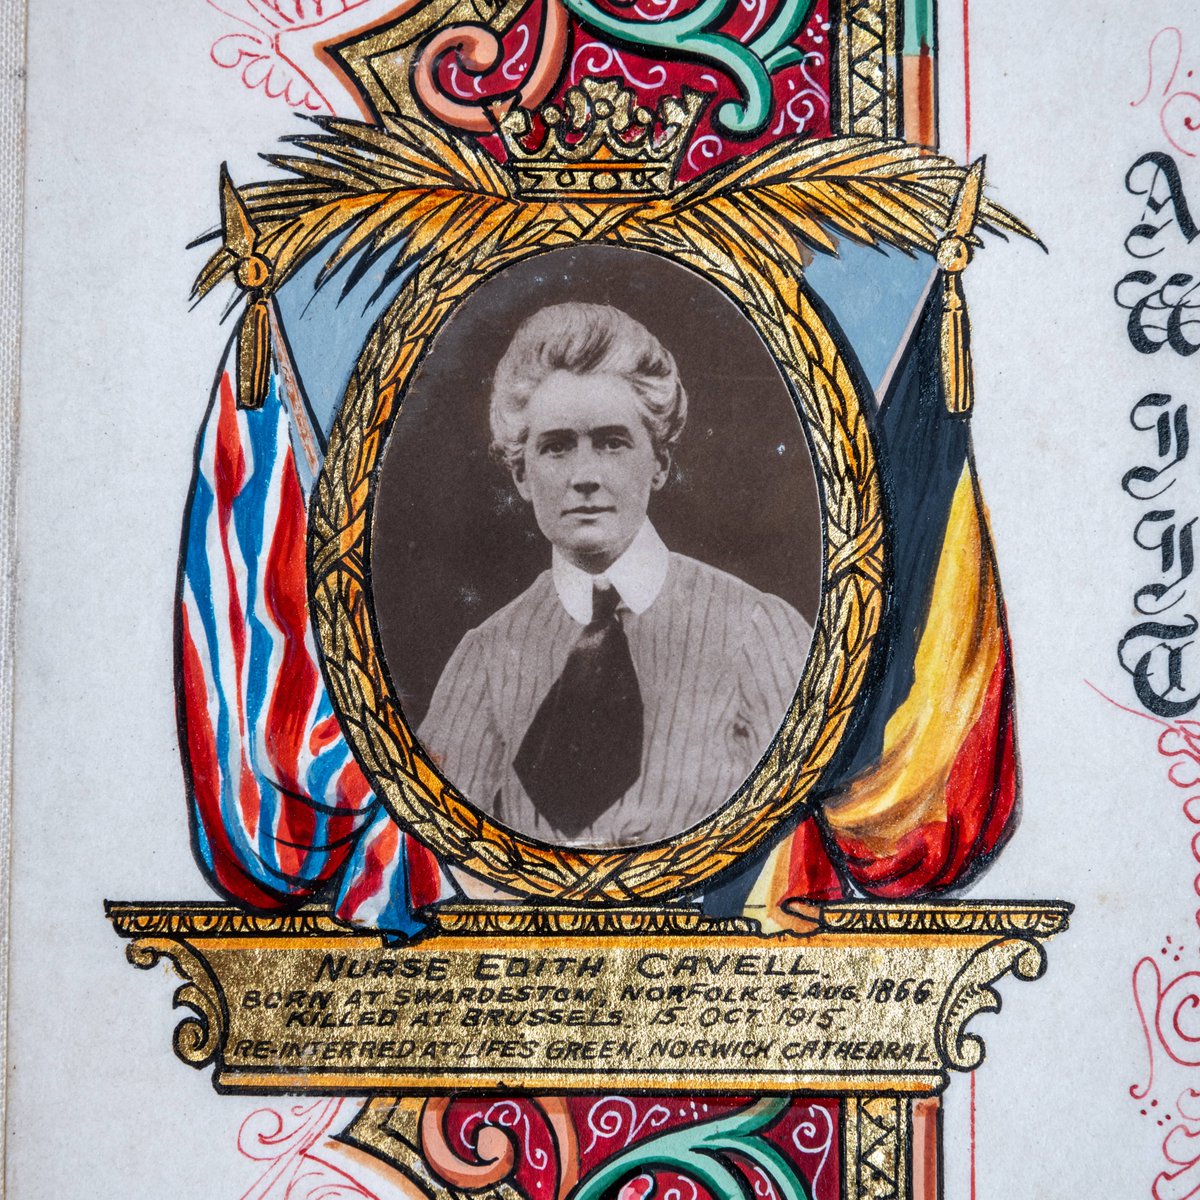 NURSE EDITH CAVELL.
BORN AT SWARDESTON, NORFOLK. 4 AUG. 1866.
KILLED AT BRUSSELS. 15. OCT. 1915.
RE-INTERRED AT LIFE'S GREEN, NORWICH CATHEDRAL.